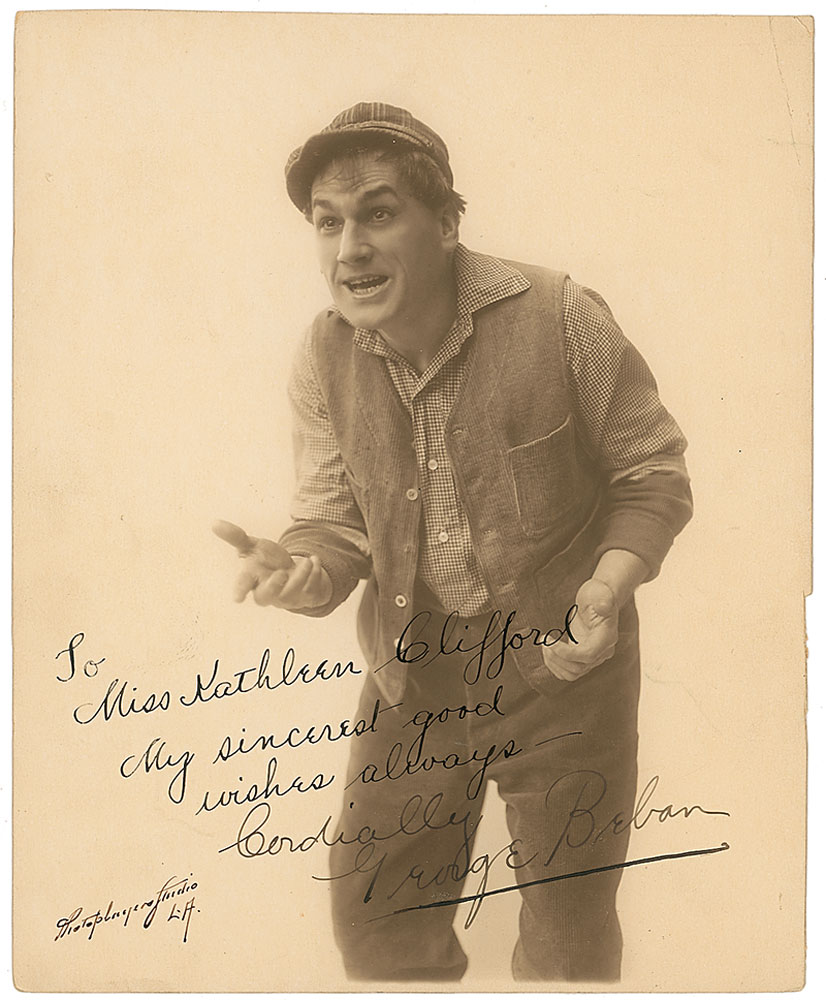 To
Miss Kathleen Clifford
My sincerest good
wishes always—
Cordially
George Beban
Photoplayers Studio
L.A.